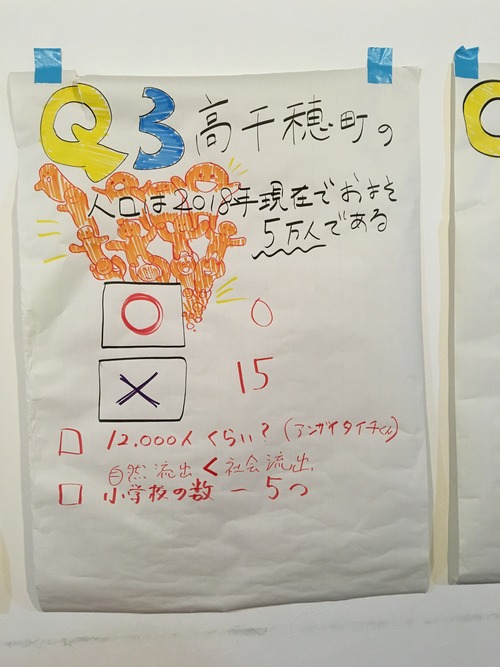 Q3 高千穂町の
人口は2018年現在でおよそ
5万人である
○ 0
× 15
□ 12.000人くらい？(アンザイタイチくん)
自然流出<社会流出.
□ 小学校の数 — 5つ